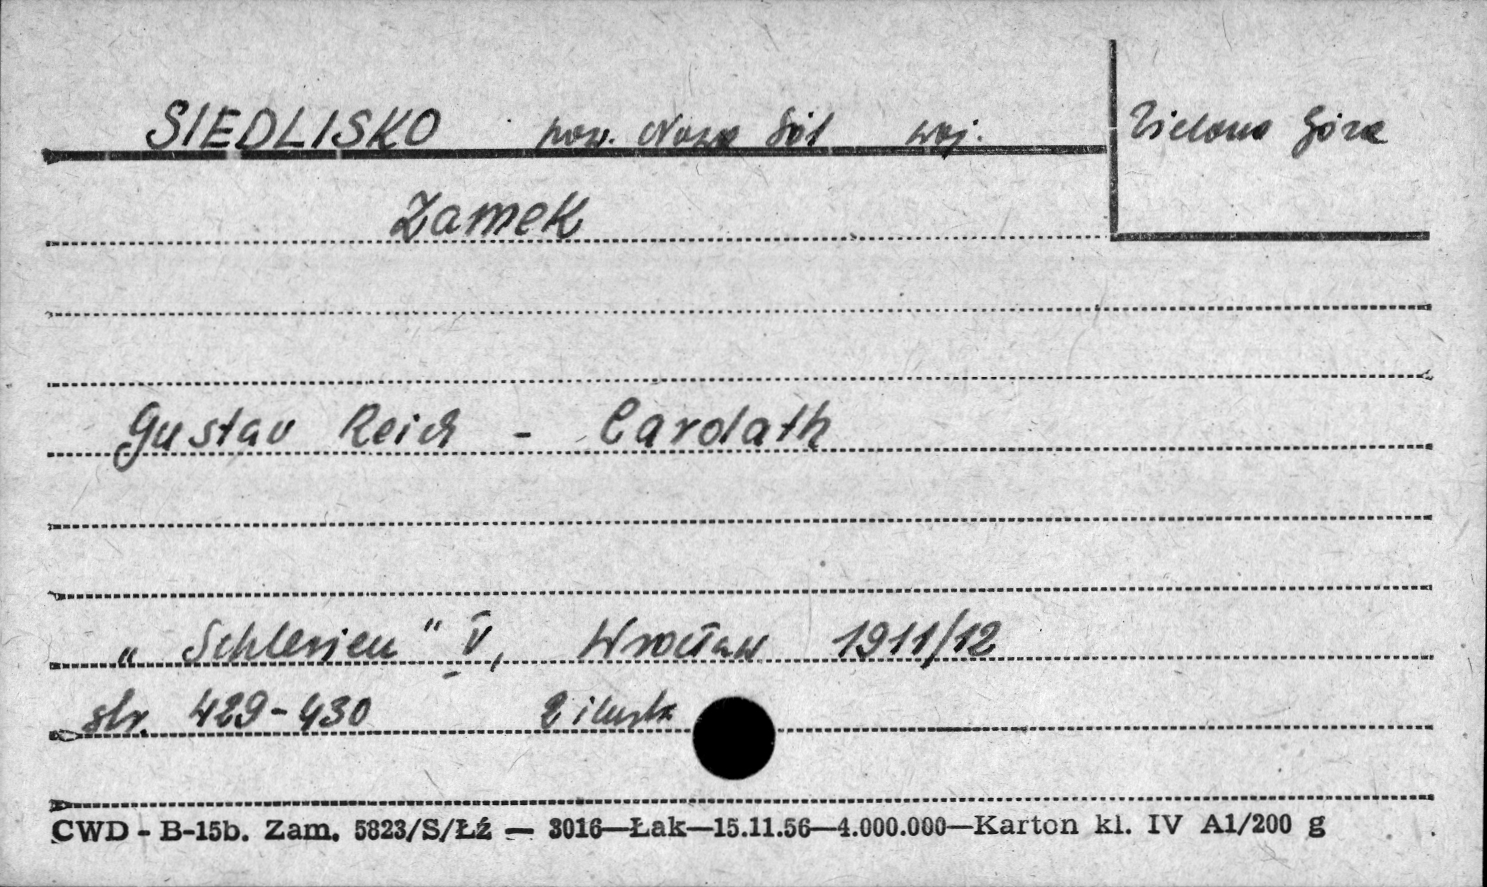 SIEDLISKO pow. Nowa Sól woj. Zielona Góra
Zamek
Gustav Reich - Carolath
„Schlesien" V, Wrocław 1911/12
str. 429-430 2 ilustr
CWD - B-15b. Zam. 5823/S/Łź — 3016—Łak—15.11.56—4.000.000—Karton kl. IV A1/200 g